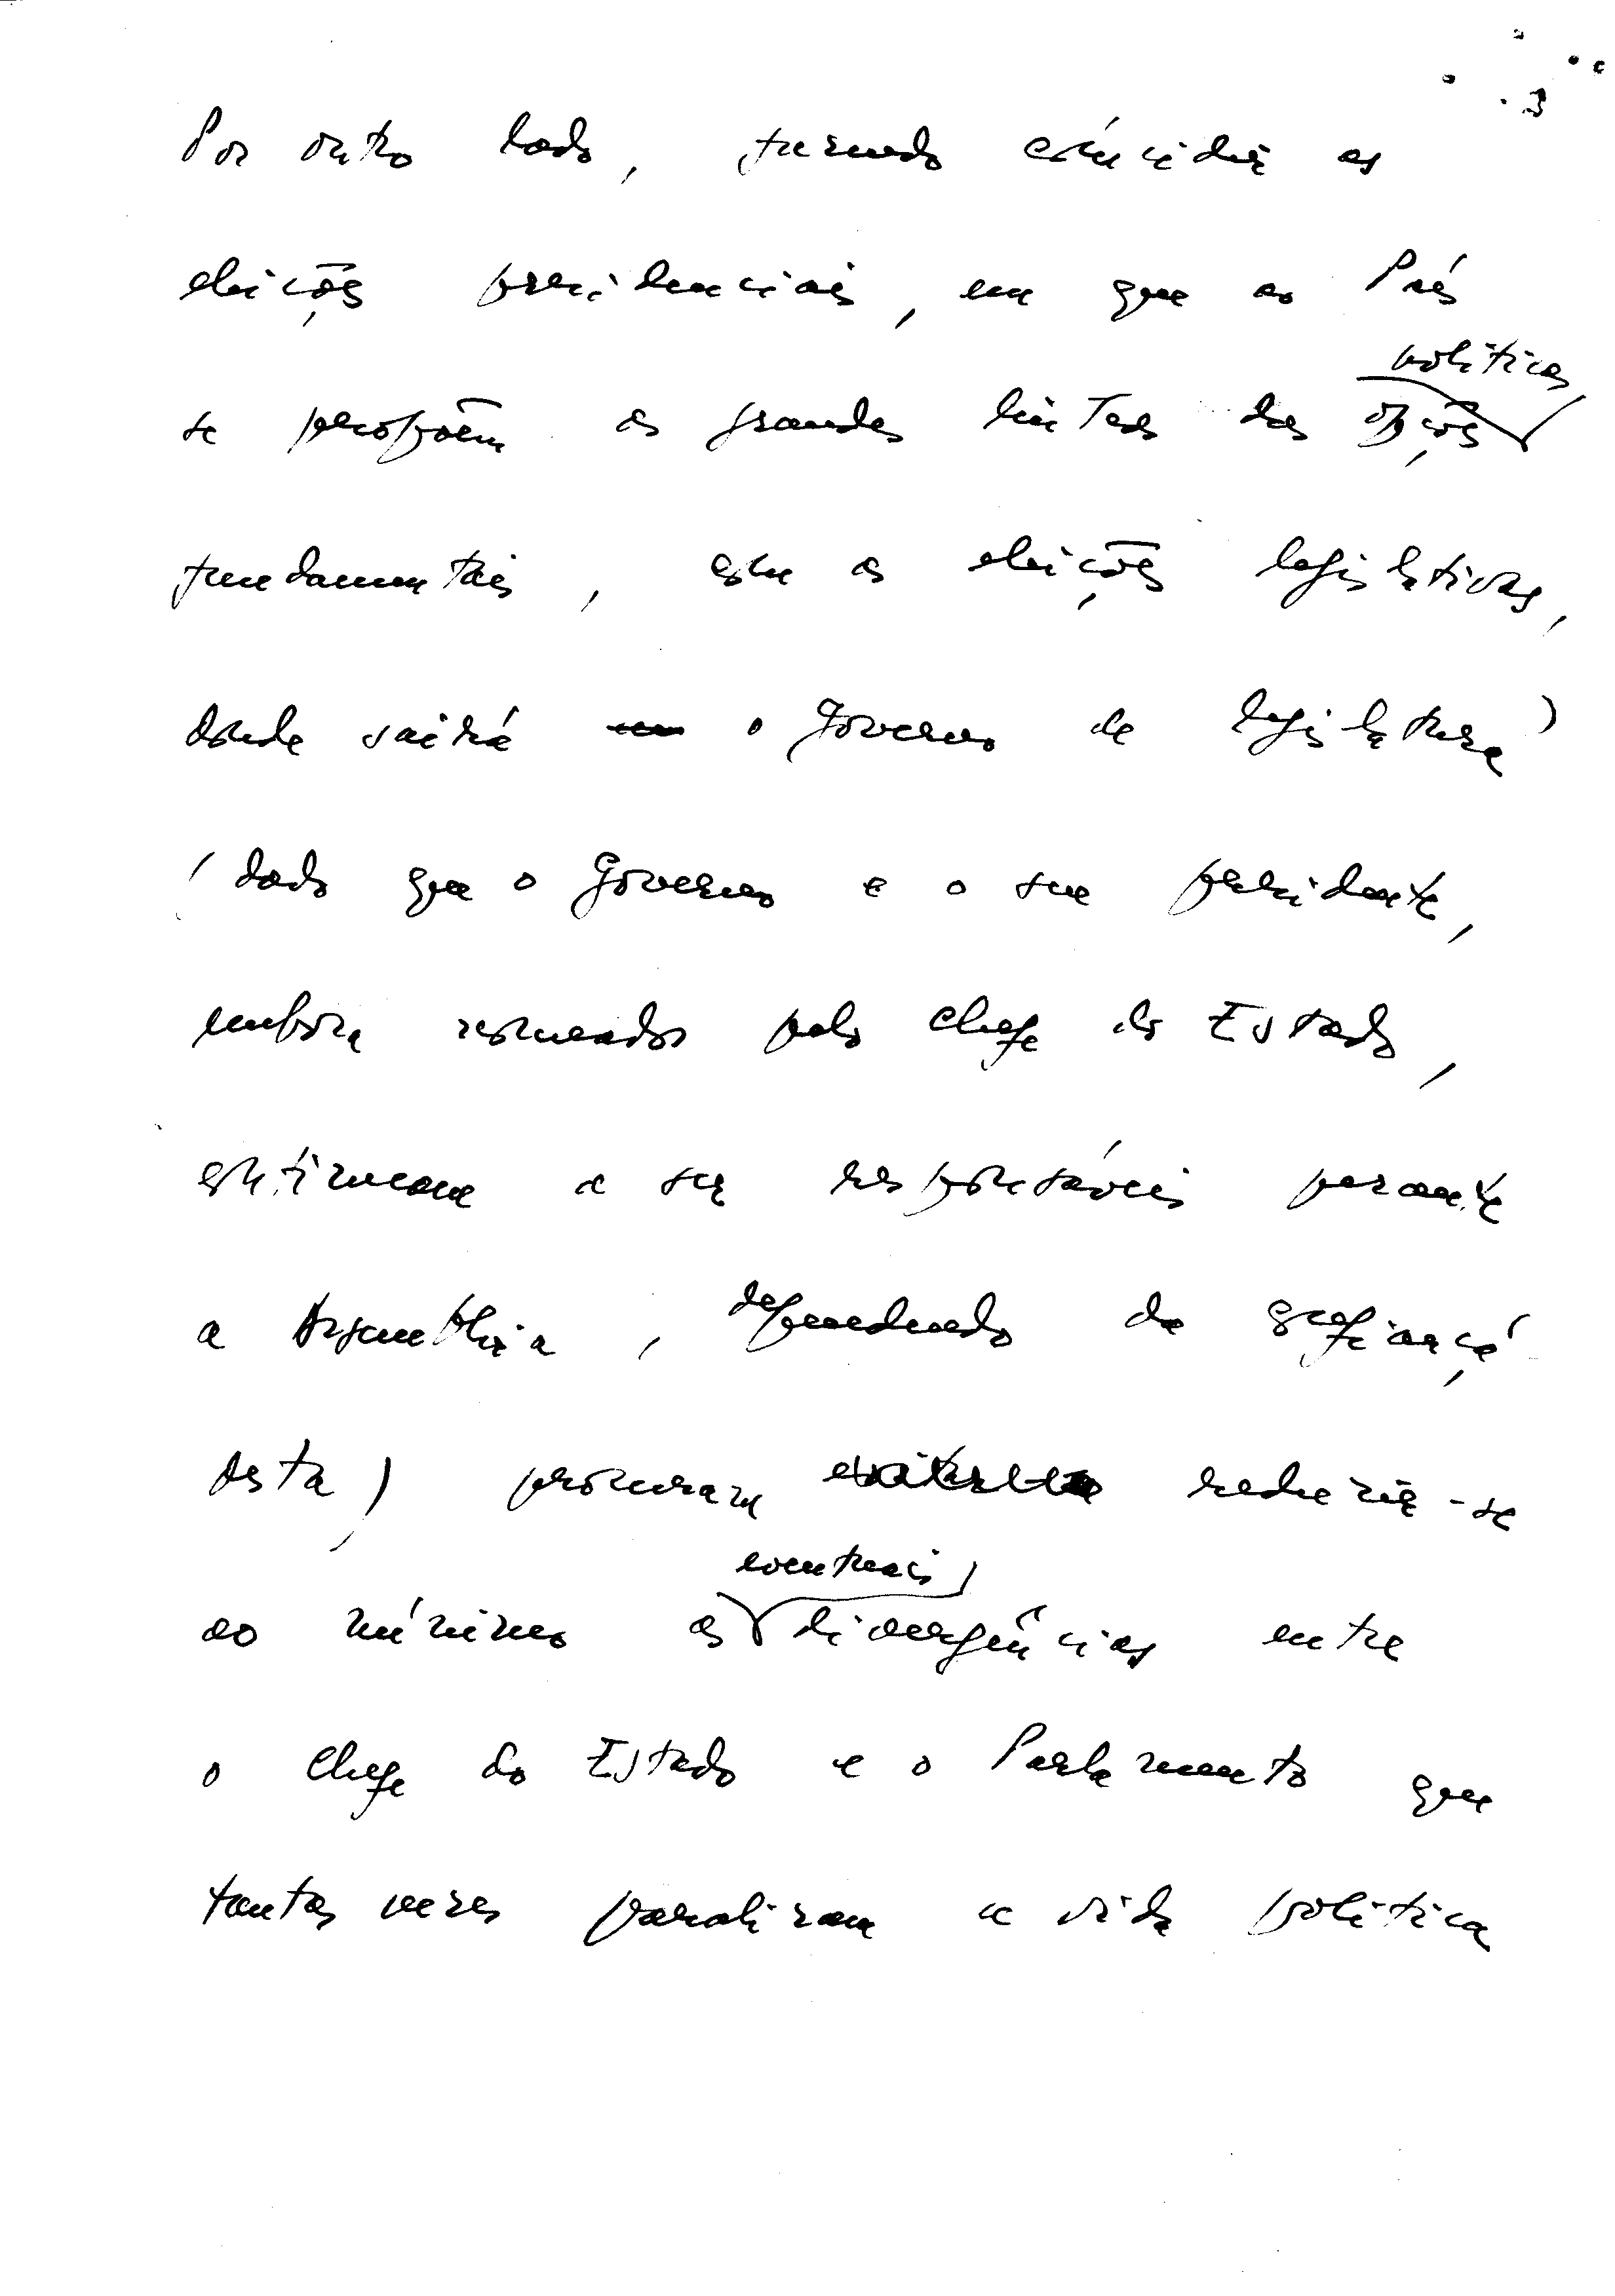 3
Por outro lado, fazendo coincidir as
eleições presidenciais, em que ao País
políticas
se propõem as grandes linhas das opções
fundamentais, com as eleições legislativas,
donde sairá o Governo de legislatura
(dado que o Governo e o seu presidente,
embora nomeados pelo Chefe do Estado,
continuam a ser responsáveis perante
a Assembleia, dependendo da confiança
desta), procuram reduzir-se
eventuais
ao mínimo as divergências entre
o Chefe do Estado e o Parlamento que
tantas vezes paralizam a vida política